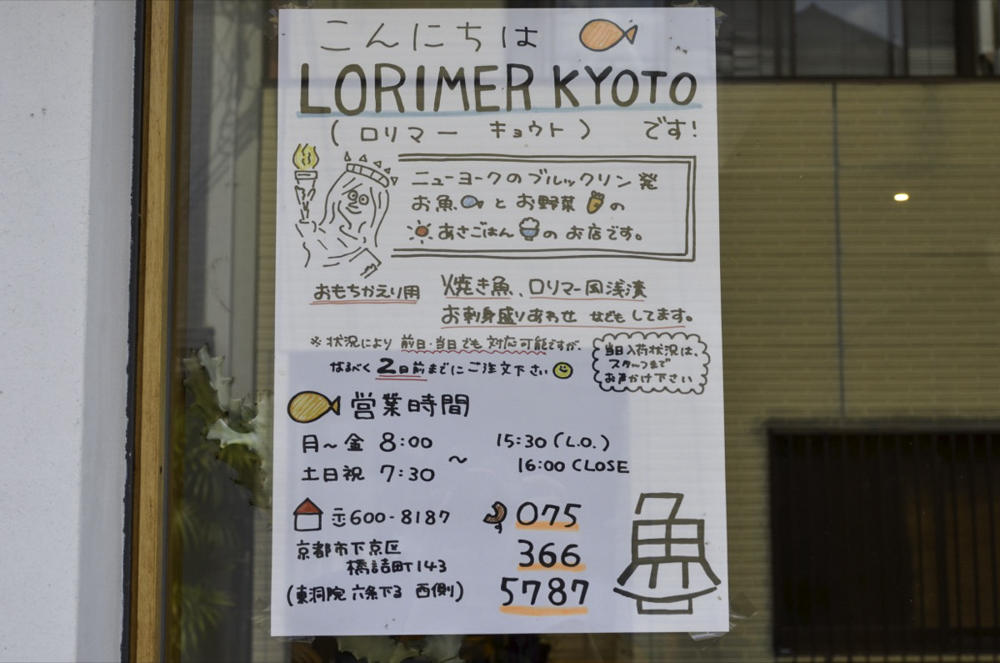 こんにちは
LORIMER KYOTO
(ロリマー キョウト) です!
ニューヨークのブルックリン発
お魚とお野菜の
あさごはんのお店です。
おもちかえり用 火焼き魚、ロリマー風浅漬
お刺身盛りあわせ などもしてます。
※状況により 前日・当日でも対応可能ですが、
なるべく 2日前までにご注文下さい
当日入荷状況は、
スタッフまで
お声かけ下さい
営業時間
月〜金 8:00
土日祝 7:30
〜
15:30(L.O.)
16:00 CLOSE
〒600-8187
京都市下京区
橋詰町143
(東洞院 六条下る 西側)
075
366
5787
魚